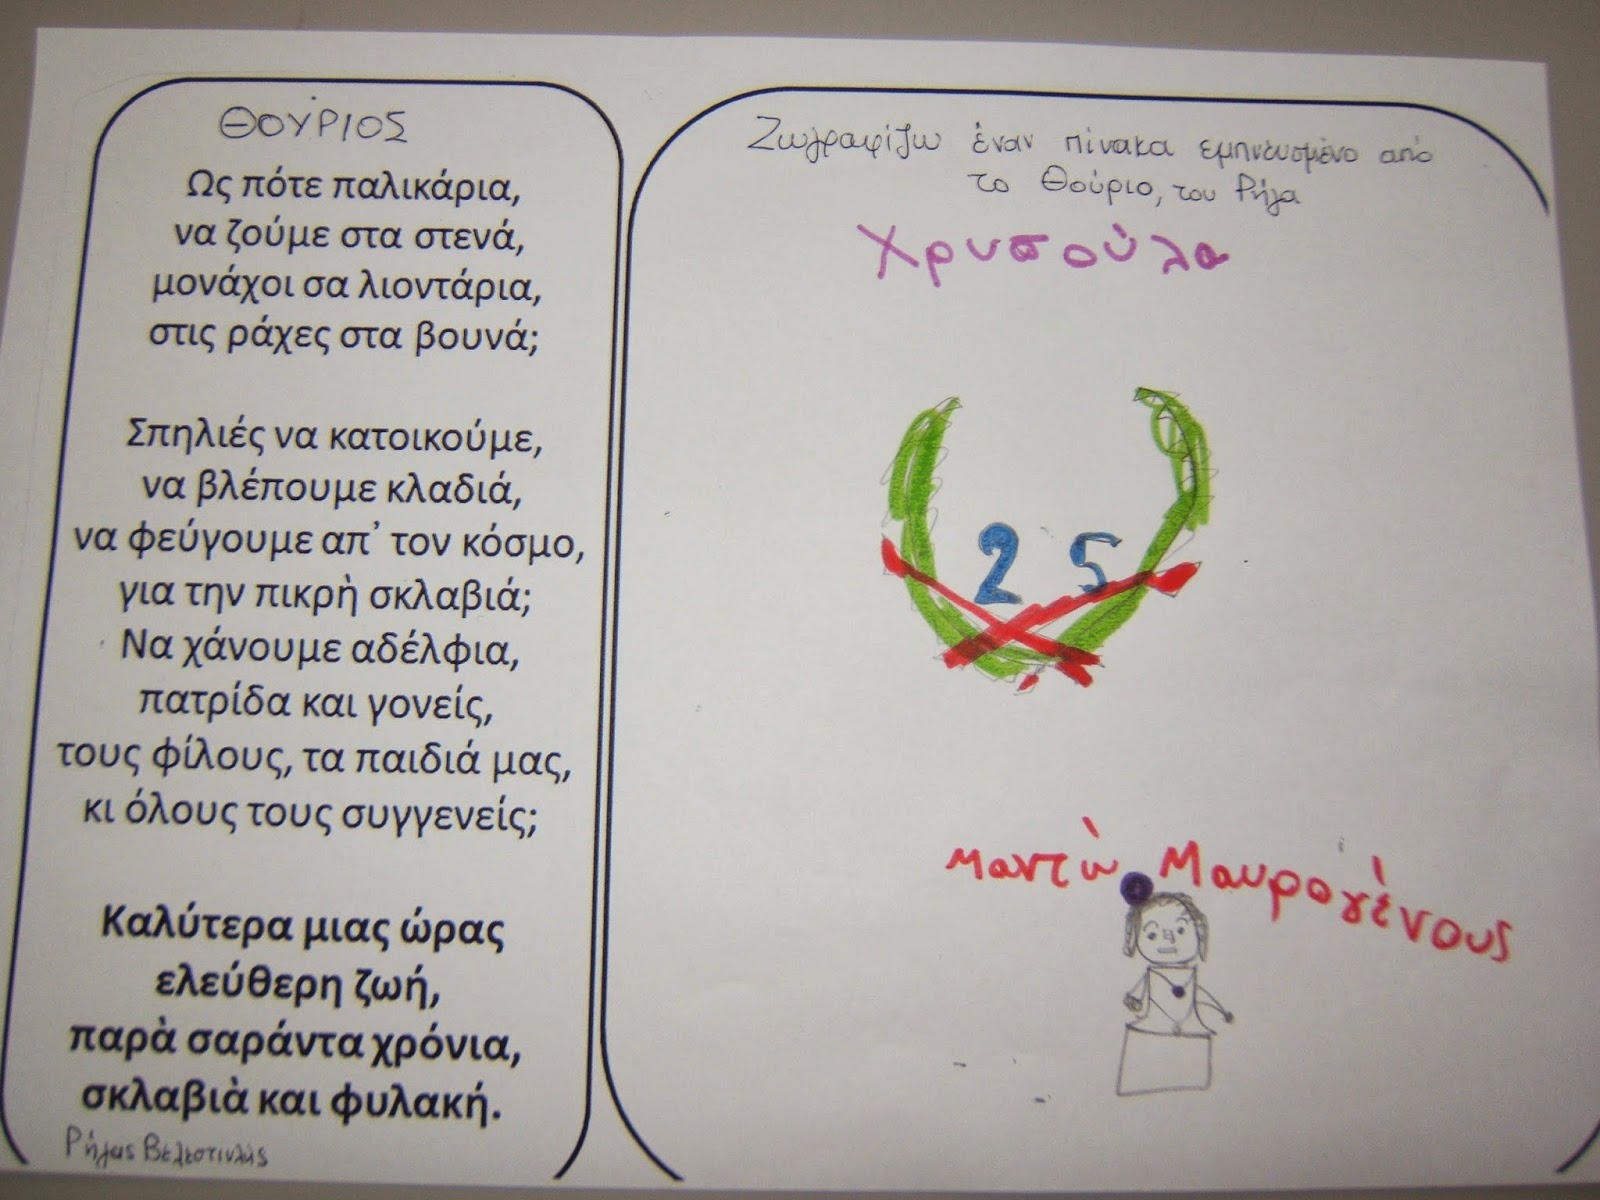 ΘΟΥΡΙΟΣ
Ως πότε παλικάρια,
να ζούμε στα στενά,
μονάχοι σα λιοντάρια,
στις ράχες στα βουνά;
Σπηλιές να κατοικούμε,
να βλέπουμε κλαδιά,
να φεύγουμε απ’ τον κόσμο,
για την πικρὴ σκλαβιά;
Να χάνουμε αδέλφια,
πατρίδα και γονείς,
τους φίλους, τα παιδιά μας,
κι όλους τους συγγενείς;
Καλύτερα μιας ώρας
ελεύθερη ζωή,
παρὰ σαράντα χρόνια,
σκλαβιὰ και φυλακή.
Ρήγας Βελεστινλής
Ζωγραφίζω έναν πίνακα εμπνευσμένο από
το Θούριο, του Ρήγα
Χρυσούλα
25
Μαντώ Μαυρογένους